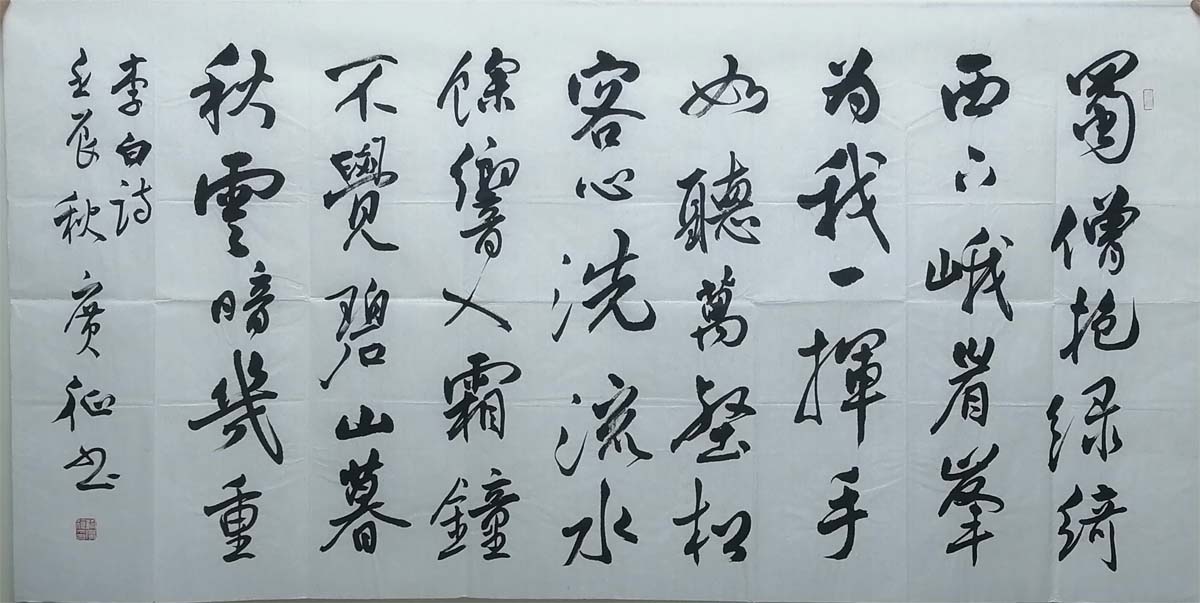 蜀僧抱绿綺
西下峨眉峯
为我一揮手
如聽萬壑松
容心洗流水
餘響入霜鐘
不覺碧山暮
秋雲暗幾重
李白詩
壬辰秋广征书